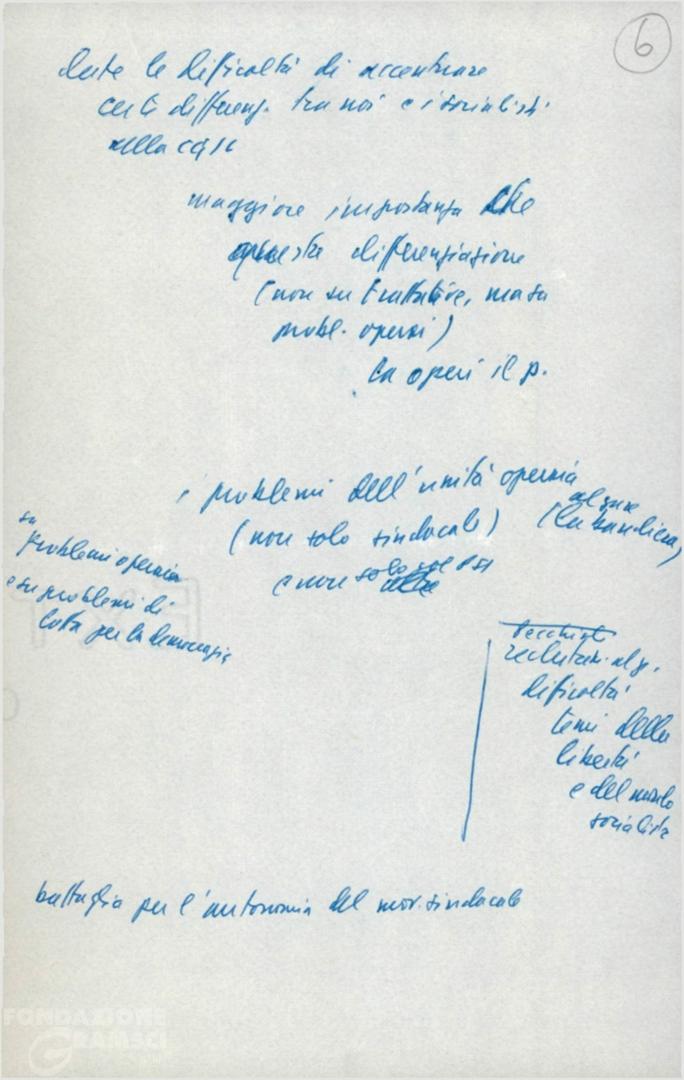 6
date le difficoltà di accentuare
certe differenz. tra noi e i socialisti
nella CGIL
maggiore importanza che
queste differenziazione
(non su trattative, ma su
probl. operai)
la operi il p.
i problemi dell'unità operaia
(non solo sindacale)
e non solo
(la bandiera)
su
problemi operai
e su problemi di
lotta per la democrazia
reclutam. al p.
difficoltà
temi della
libertà
e del mondo
socialista
battaglia per l'autonomia del mov. sindacale
FONDAZIONE
GRAMSCI